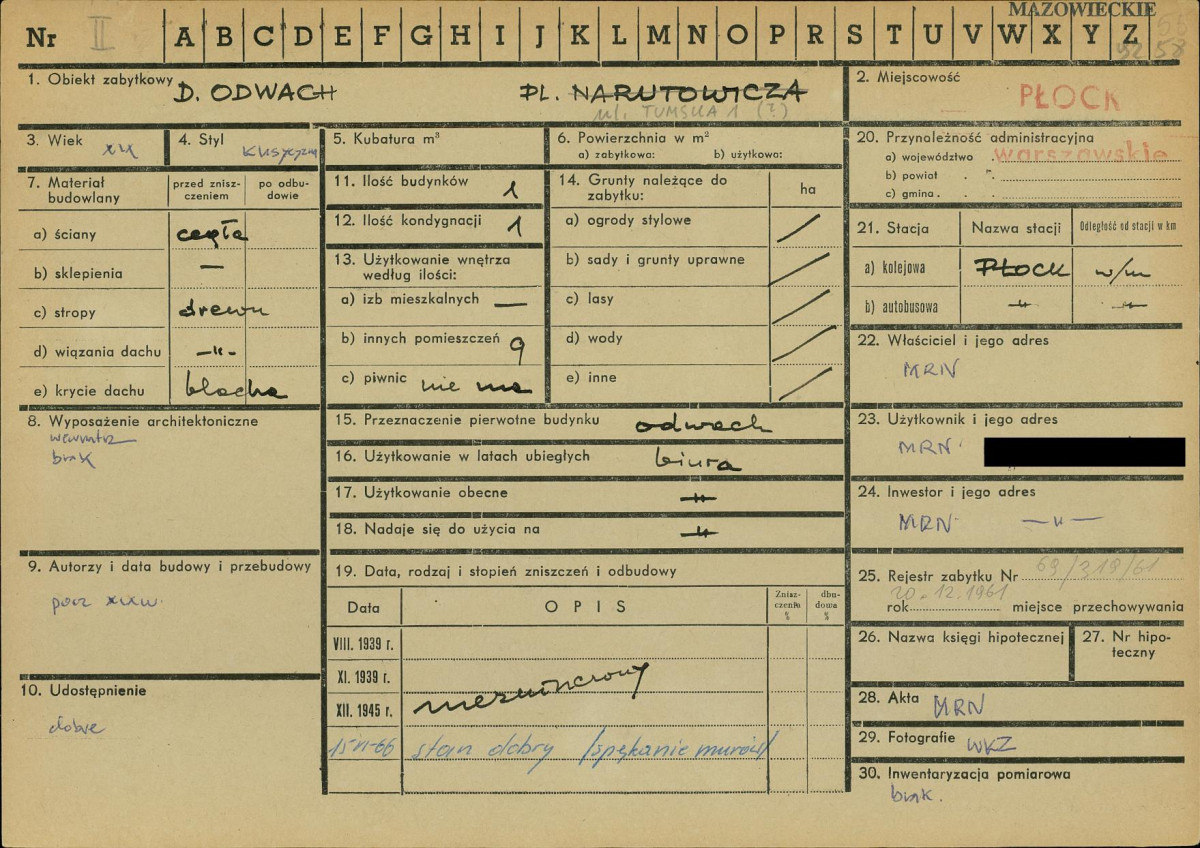 MAZOWIECKIE
Nr II A B C D E F G H I J K L M N O P R S T U V W X Y Z
1. Obiekt zabytkowy D. ODWACH PL. NARUTOWICZA
ul. TUMSKA 1 (?)
2. Miejscowość
PŁOCK
3. Wiek XIX
4. Styl
5. Kubatura m³
6. Powierzchnia w m²
a) zabytkowa: b) użytkowo:
20. Przynależność administracyjna
a) województwo warszawskie
b) powiat
c) gmina
7. Materiał budowlany
przed zniszczeniem
po odbudowie
a) ściany cegła
b) sklepienia —
c) stropy drewn
d) wiązania dachu —"—
e) krycie dachu blacha
11. Ilość budynków 1
12. Ilość kondygnacji 1
13. Użytkowanie wnętrza
według ilości:
a) izb mieszkalnych —
b) innych pomieszczeń 9
c) piwnic nie ma
14. Grunty należące do
zabytku:
ha
a) ogrody stylowe /
b) sady i grunty uprawne /
c) lasy /
d) wody /
e) inne /
21. Stacja
Nazwa stacji
Odległość od stacji w km
a) kolejowa PŁOCK w/m
b) autobusowa —"— —"—
22. Właściciel i jego adres
MRN
8. Wyposażenie architektoniczne
wewnątrz
brak
15. Przeznaczenie pierwotne budynku odwach
16. Użytkowanie w latach ubiegłych biura
17. Użytkowanie obecne —"—
18. Nadaje się do użycia na —"—
23. Użytkownik i jego adres
MRN
24. Inwestor i jego adres
MRN —"—
9. Autorzy i data budowy i przebudowy
pocz XIX w.
10. Udostępnienie
dobre
19. Data, rodzaj i stopień zniszczeń i odbudowy
Data
OPIS
Zniszczenia %
dbudowa %
VIII. 1939 r.
XI. 1939 r.
XII. 1945 r. niezniszczony
15 VI-66 stan dobry /spękanie murów/
25. Rejestr zabytku Nr 69/319/61
20.12.1961
rok miejsce przechowywania
26. Nazwa księgi hipotecznej
27. Nr hipoteczny
28. Akta MRN
29. Fotografie WKZ
30. Inwentaryzacja pomiarowa
brak.